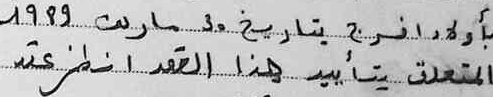 بأولاد افرج بتاريخ 30 مارس 1989
المتعلق بتأييد هذا العقد انظر عقد